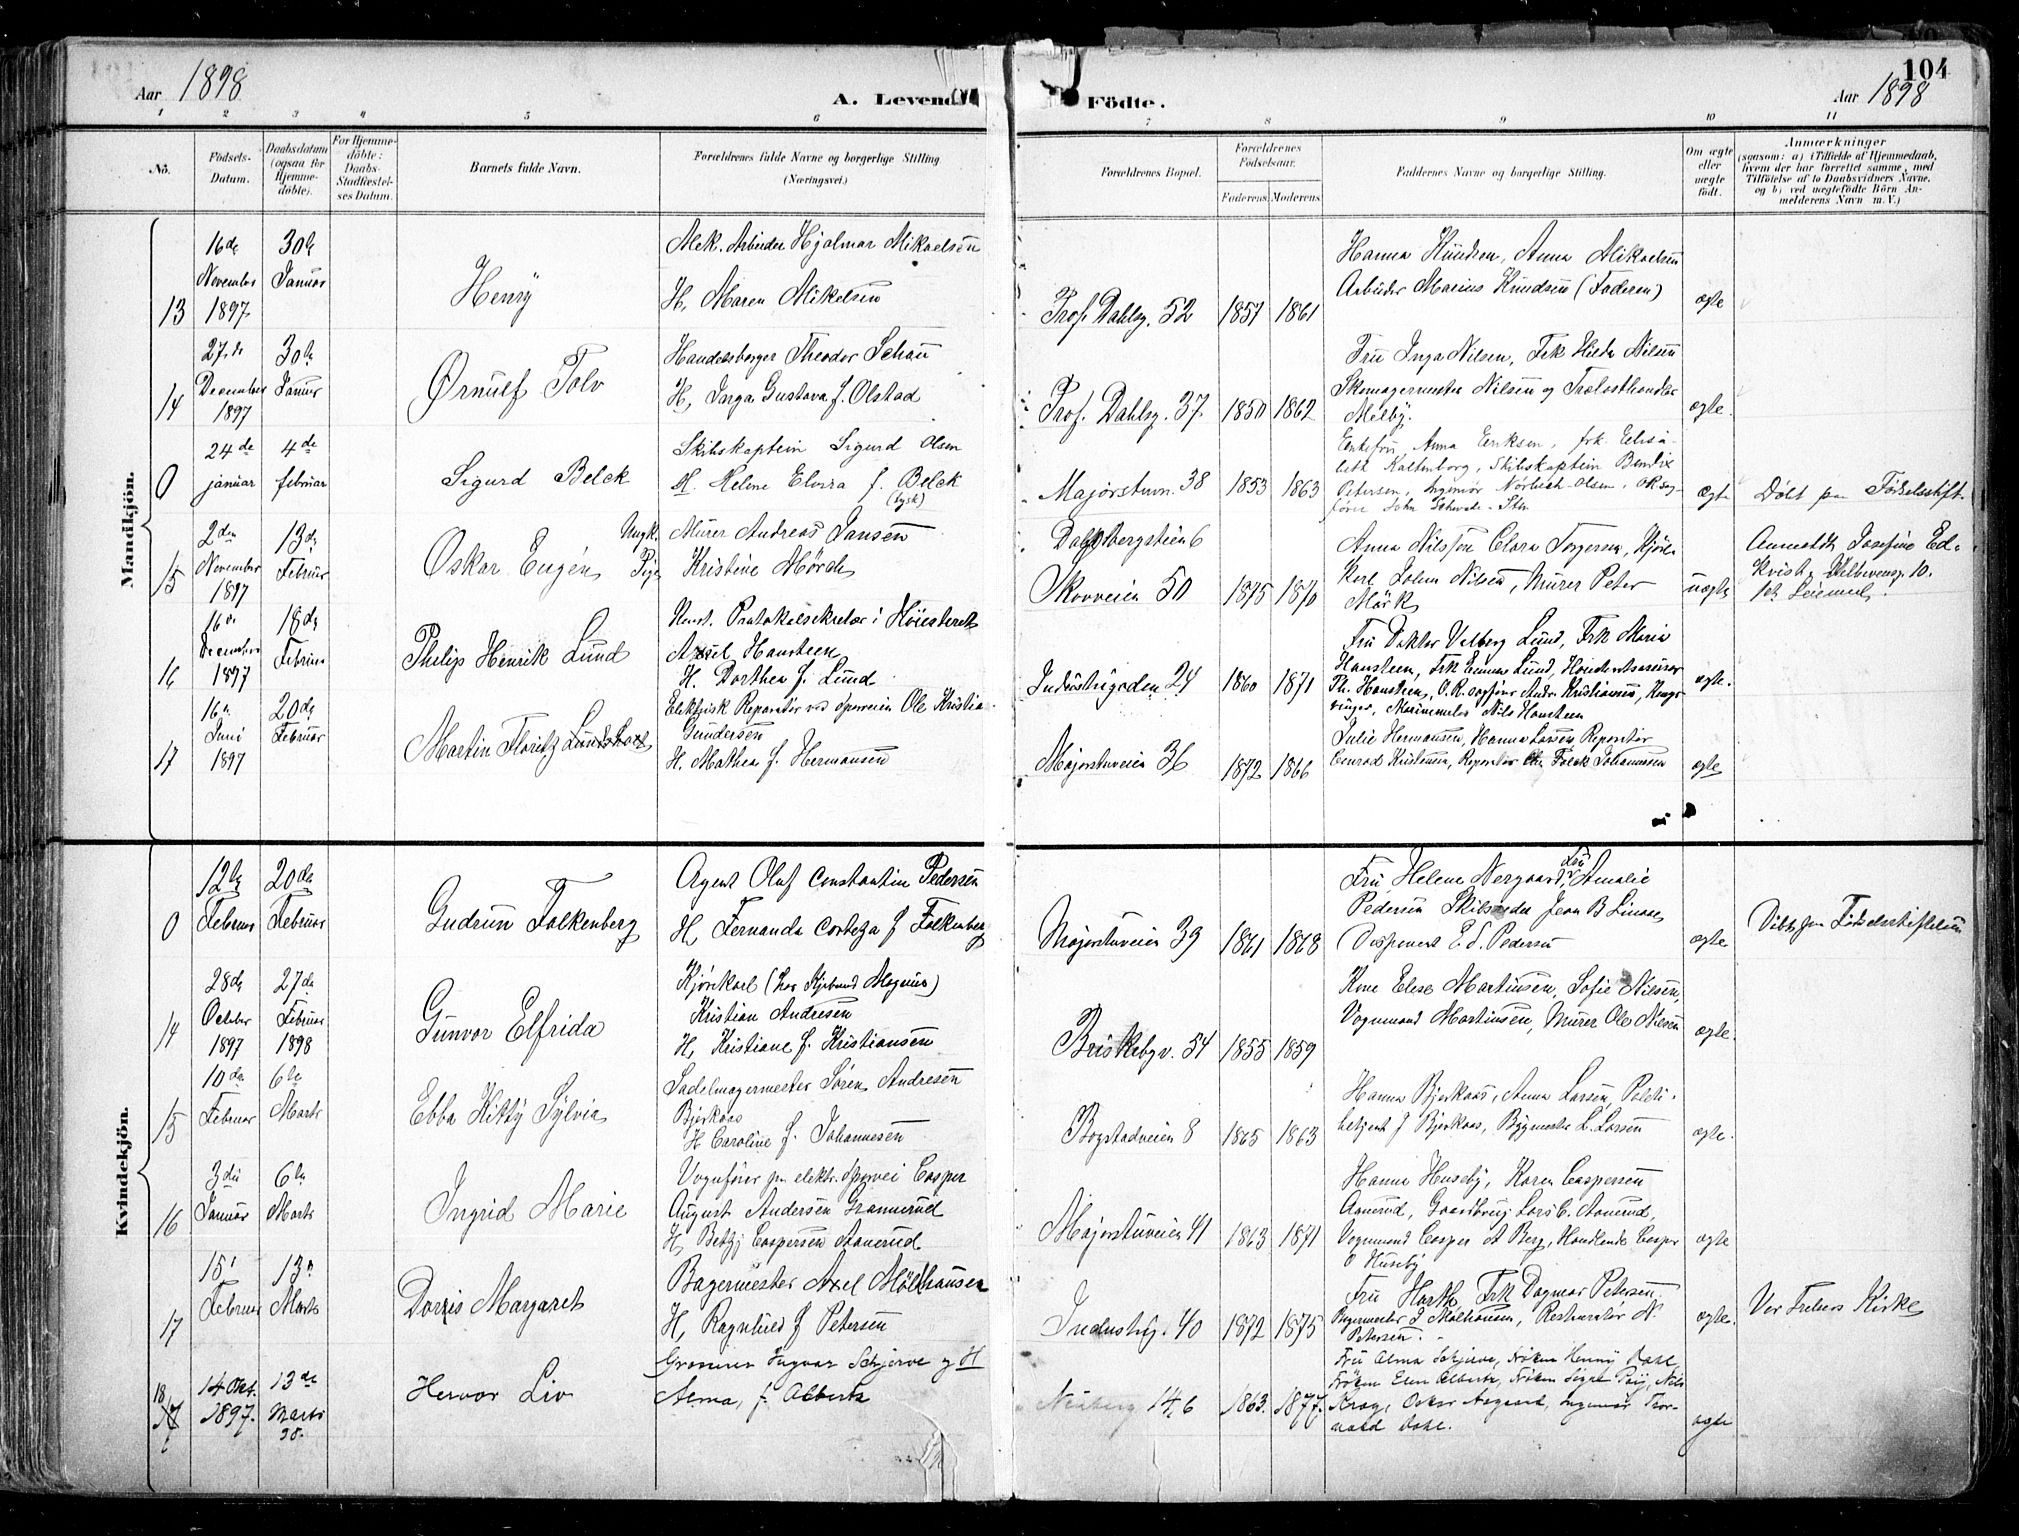 104
Aar 1898
A. Levende Födte.
Aar 1898
1 2 3 4 5 6 7 8 9 10 11
No.
Födsels-Datum.
Daabsdatum (ogsaa for Hjemmedöbte).
For Hjemmedöbte: Daabs-Stadfæstelses Datum.
Barnets fulde Navn.
Forældrenes fulde Navne og borgerlige Stilling (Næringsvei.)
Forældrenes Bopæl.
Forældrenes Födselsaar.
Faderens. Moderens.
Faddernes Navne og borgerlige Stilling.
Om ægte eller uægte födt.
Anmærkninger
(saasom: a) i Tilfælde af Hjemmedaab, hvem der har forrettet samme, med Tilföielse af to Daabsvidners Navne, og b) ved uægtefödte Börn Anmelderens Navn m. V.)
Mandkjön.
13 16de November 1897 30te Januar
Henry
Mek. Arbeider Hjalmar Mikaelsen
H. Maren Mikelsen
Prof. Dahlsg. 52 1857 1861
Hanna Knudsen, Anna Mikaelsen
Arbeider Marius Knudsen (Faderen)
ægte
14 27de December 1897 30te Januar
Ørnulf Tolv
Handelsborger Theodor Schau
H, Inga Gustava f. Olstad
Prof. Dahlsg. 37. 1850 1862
Fru Inga Nilsen, Frk Hilda Nilsen
Skomagermester Nilsen og Trælasthandler
Melby.
ægte.
0 24de januar 4de februar
Sigurd Belck
Skibskaptein Sigurd Olsen
H. Helene Elvira f. Belck
(tysk)
Majorstuv. 38 1853 1863
Enkefru Anna Eriksen, frk. Elisabeth Kaltenborg, Skibskaptein Bendix
Petersen, Ingeniør Nörbech-Olsen,
ægte
Døbt paa Fødselsstift.
15 2den November 1897 13de Februar
Oskar Eugen
Ungk. Murer Andreas Jansen
Pige Kristine Mörch
6
Skovveien 50 1875 1870
Anna Nilsson Clara Torgersen, Kjøre
Karl Johan Nilsen, Murer Peter
Mörk
uægte
Anmeldt Josefine Edkvist,
16 16de December 1897 18de Februar
Philip Henrik Lund
Const. Protokolsekretær i Høiesteret
Axel Hansteen
H. Dorthea f. Lund
Industrigaden 24 1860 1871
Fru Doktor Valborg Lund, Frk Maria
Hansteen, Frk Emma Lund,
Th. Hansteen, O.R. sagfører Andr. Kristiansen, Kongsvinger, Nils Hansteen
ægte.
17 16de Juni 1897 20de Februar
Martin Floritz
Elektrisk Reparatør ved Sporveien Ole Kristian
Gundersen
H. Mathea f. Hermansen
Majorstuveien 36 1872 1866
Julie Hermansen, Hanna Larsen, Reparatør
Conrad Kristensen, Reparatør Johannesen
ægte
Kvindekjön.
0 12te Februar 20de Februar
Gudrun Falkenberg
Agent Oluf Constantin Pedersen
H, Fernanda Corteza f Falkenberg
Majorstuveien 39 1861 1868
Fru Helene Nergaard, Fru Amalie
Pedersen Skibsreder Jean B Linaae
Disponent E. S. Pedersen
ægte
Døbt paa Fødselsstiftelsen
14 28de October 1897 27de Februar 1898
Gunvor Elfrida
Kjørekarl (hos Kjøbmand Magnus)
Kristian Andresen
H, Kristiane f. Kristiansen
Briskebyv. 54 1855 1859
Kone Elise Martinsen, Sofie Nilsen,
Vognmand Martinsen, Murer Ole Nilsen
ægte.
15 10de Februar 6te Marts
Ebba Kitty Sylvia
Sadelmagermester Sören Andresen
Bjerkaas
H Caroline f. Johannesen
Bogstadveien 8 1865 1863
Hanna Bjerkaas, Anna Larsen, Politibetjent J Bjerkaas, Bygmester L. Larsen
ægte.
16 3die Januar 6te Marts
Ingrid Marie
Vognfører paa elektr. Sporvei Casper
August Andersen Grannerud
H, Betzy Caspersen Aanerud
Majorstuveien 41 1863 1871
Hanna Huseby, Karen Caspersen
Aanerud, Gaardbrug Lars C. Aanerud,
Vognmand Casper A Berg, Handlende Casper
O Huseby
ægte
17 15 Februar 13 Marts
Dorris Margaret
Bagermester Axel Mölhausen
H, Ragnhild f Petersen
Industrig. 40 1872 1875
Fru Harth, Frk Dagmar Petersen
Bagermester J Mölhausen, Restauratør N.
Petersen.
ægte.
Vor Frelsers Kirke
18 14 Okt. 1897. 13de Marts 98.
Hervor Liv
Grosserer Ingvar Schjerve og H
Alma, f. Alberts
14.6 1863. 1877.
Fru Alma Schjerve, Frøken Henny Dahl,
Frøken Elen Alberts, Frøken Signe Nils
Krag, Oskar Aagaard, Ingeniør Thorvald Dahl.
ægte